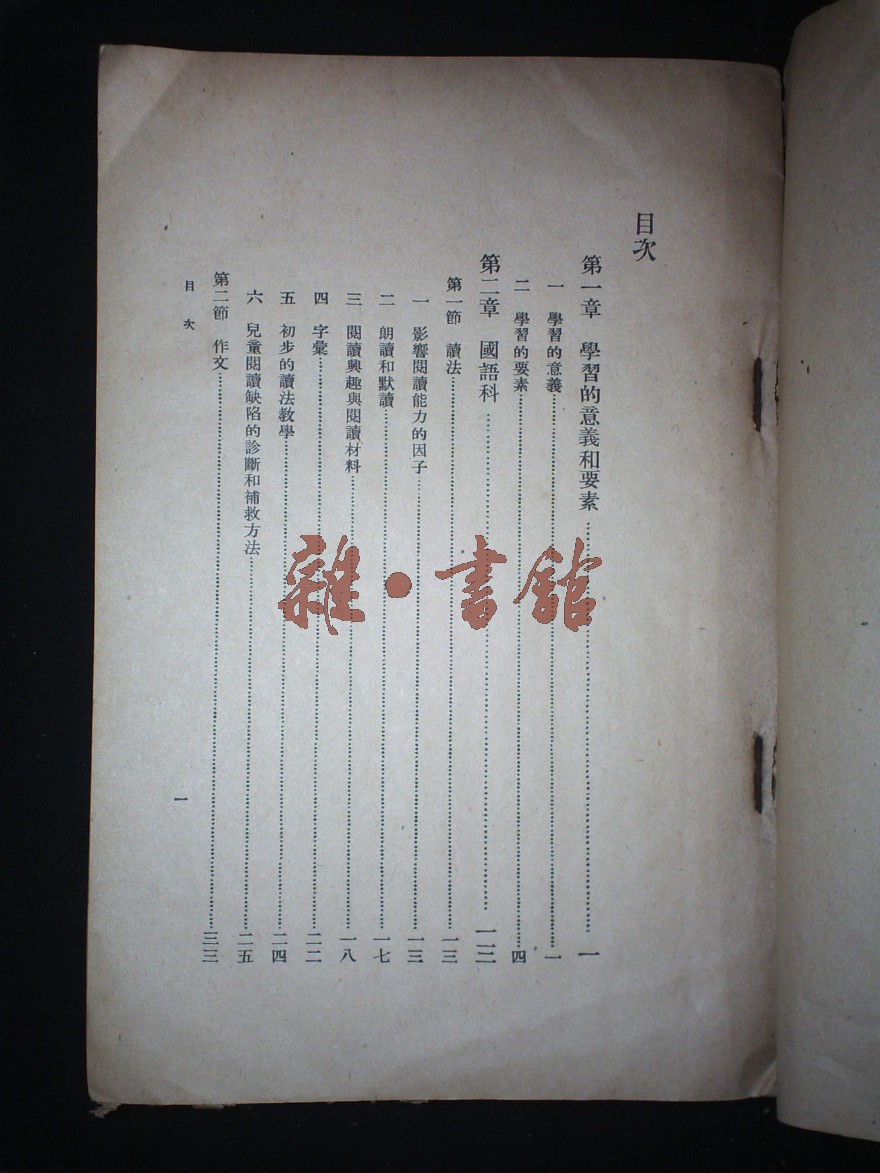 目次
第一章 學習的意義和要素……一
一 學習的意義……一
二 學習的要素……四
第二章 國語科……一三
第一節 讀法……一三
一 影響閱讀能力的因子……一三
二 朗讀和默讀……一七
三 閱讀興趣與閱讀材料……一八
四 字彙……二二
五 初步的讀法教學……二四
六 兒童閱讀缺陷的診斷和補救方法……二五
第二節 作文……三三
目次
一
雜·書館